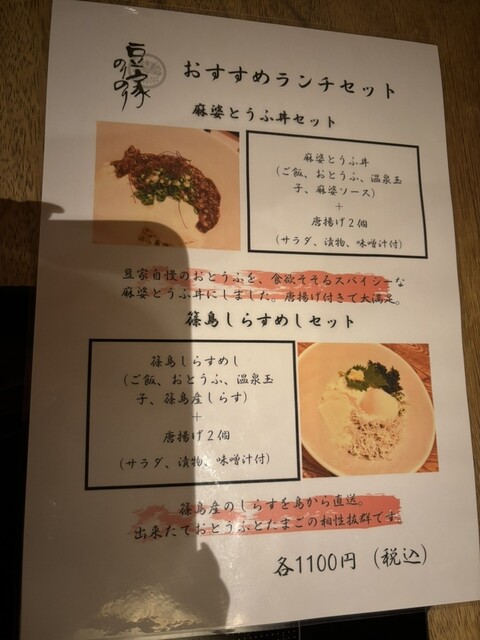 豆家
のりのり
おすすめランチセット
麻婆とうふ丼セット
麻婆とうふ丼
(ご飯、おとうふ、温泉玉
子、麻婆ソース)
＋
唐揚げ２個
(サラダ、漬物、味噌汁付)
豆家自慢のおとうふを、食欲そそるスパイシーな
麻婆とうふ丼にしました。唐揚げ付きで大満足。
篠島しらすめしセット
篠島しらすめし
(ご飯、おとうふ、温泉玉
子、篠島産しらす)
＋
唐揚げ２個
(サラダ、漬物、味噌汁付)
篠島産のしらすを島から直送。
出来たておとうふとたまごの相性抜群です。
各1100円（税込）